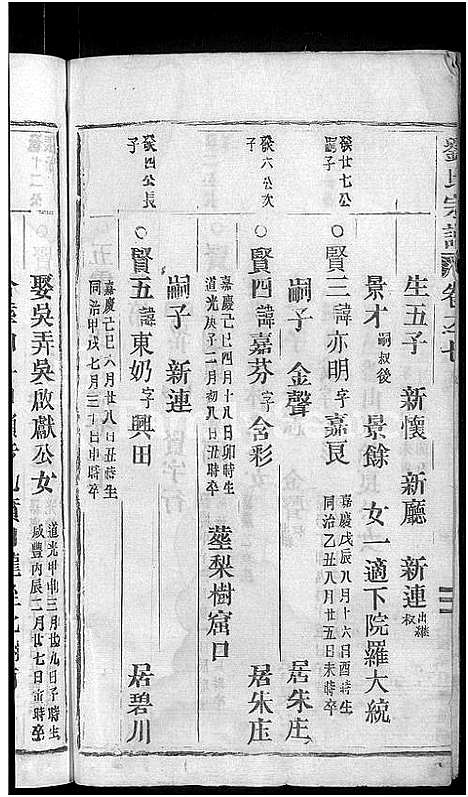 劉氏宗譜 卷之七
生五子 新懷 新廳 新連出繼叔
景才嗣叔後 景餘 女一適下院羅大統
發廿七公嗣子
○賢三諱亦明字嘉良 嘉慶戊辰八月十六日酉時生 同治乙丑八月廿五日未時卒
嗣子 金聲 居朱庄
發六公次子
○賢四諱嘉芬字含彩 居朱庄
嘉慶己巳四月十八日卯時生 道光庚子二月初八日丑時卒 塟梨樹窟口
嗣子 新連
發四公長子
○賢五諱東奶字興田 居碧川
嘉慶己巳八月廿八日丑時生 同治甲戌七月三十日申時卒
娶吳弄吳啟獻公女 道光甲申三月廿九日子時生 咸豐丙辰二月廿七日寅時卒